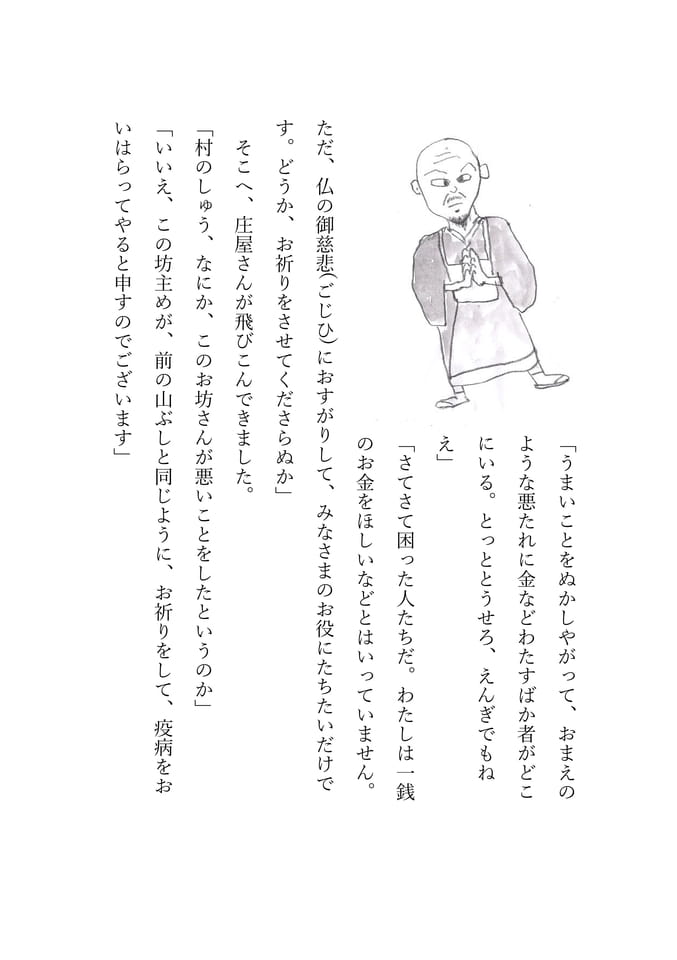 「うまいことをぬかしやがって、おまえの
ような悪たれに金などわたすばか者がどこ
にいる。とっととうせろ、えんぎでもね
え」
「さてさて困った人たちだ。わたしは一銭
のお金をほしいなどとはいっていません。
ただ、仏の御慈悲(ごじひ)におすがりして、みなさまのお役にたちたいだけで
す。どうか、お祈りをさせてくださらぬか」
そこへ、庄屋さんが飛びこんできました。
「村のしゅう、なにか、このお坊さんが悪いことをしたというのか」
「いいえ、この坊主めが、前の山ぶしと同じように、お祈りをして、疫病をお
いはらってやると申すのでございます」